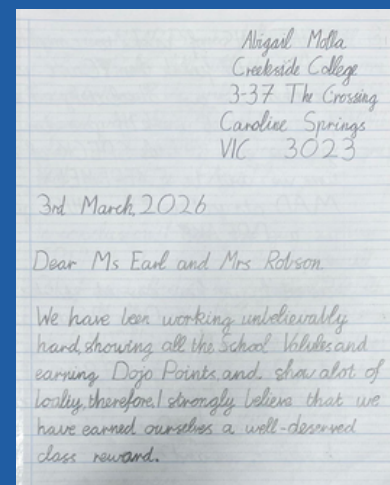 Abigail Molla
Creekside College
3-37 The Crossing
Caroline Springs
VIC 3023
3rd March, 2026
Dear Ms Earl and Mrs Robson.
We have been working unbelievably
hard, showing all the School Values and
earning Dojo Points, and show alot of
loalty, therefore, I strongly believe that we
have earned ourselves a well-deserved
class reward.